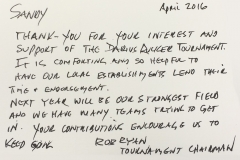 SANDY
April 2016
THANK-YOU FOR YOUR INTEREST AND
SUPPORT OF THE DARIUS RUCKER TOURNAMENT.
IT IS COMFORTING AND SO HELPFUL TO
HAVE OUR LOCAL ESTABLISHMENTS LEND THEIR
TIME & ENDORSEMENT.
NEXT YEAR WILL BE OUR STRONGEST FIELD
AND WE HAVE MANY TEAMS TRYING TO GET
IN. YOUR CONTRIBUTIONS ENCOURAGE US TO
KEEP GOING. ROB RYAN
TOURNAMENT CHAIRMAN